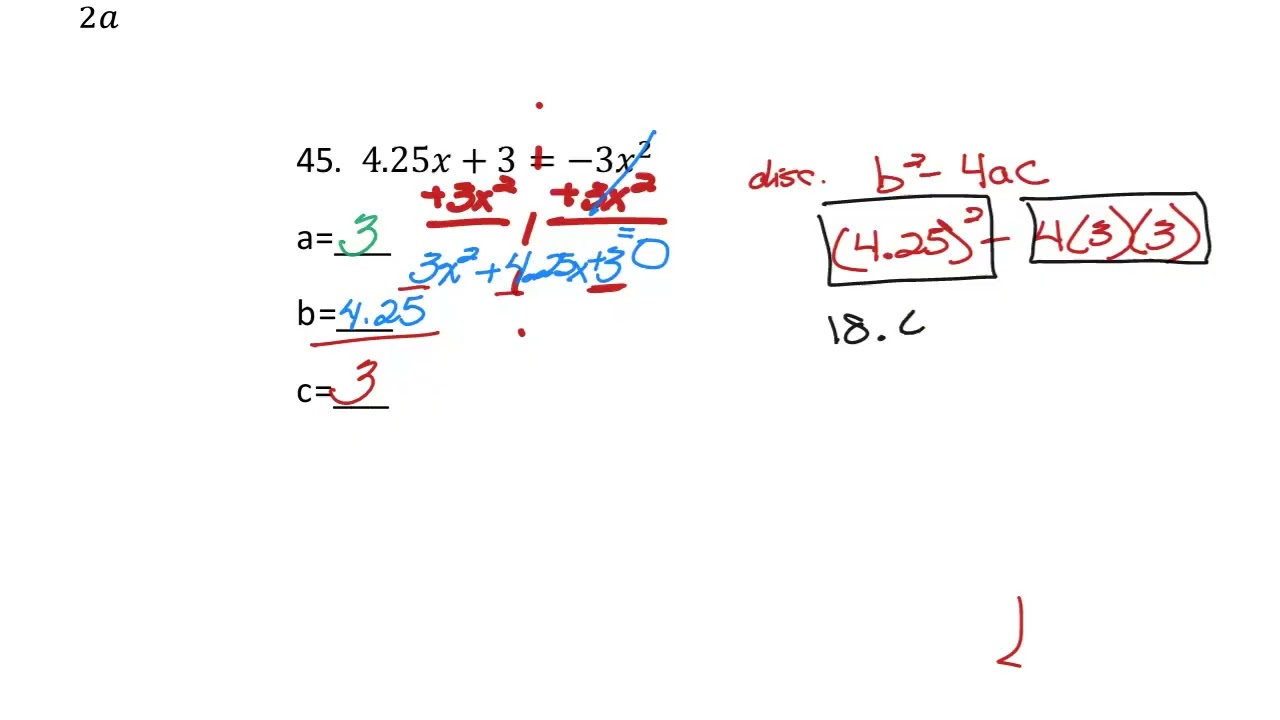 2a
45. 4.25x + 3 = −3x²
+3x² +3x²
a=3
3x² + 4.25x + 3 = 0
b=4.25
c=3
disc. b² - 4ac
(4.25)² - 4(3)(3)
18.